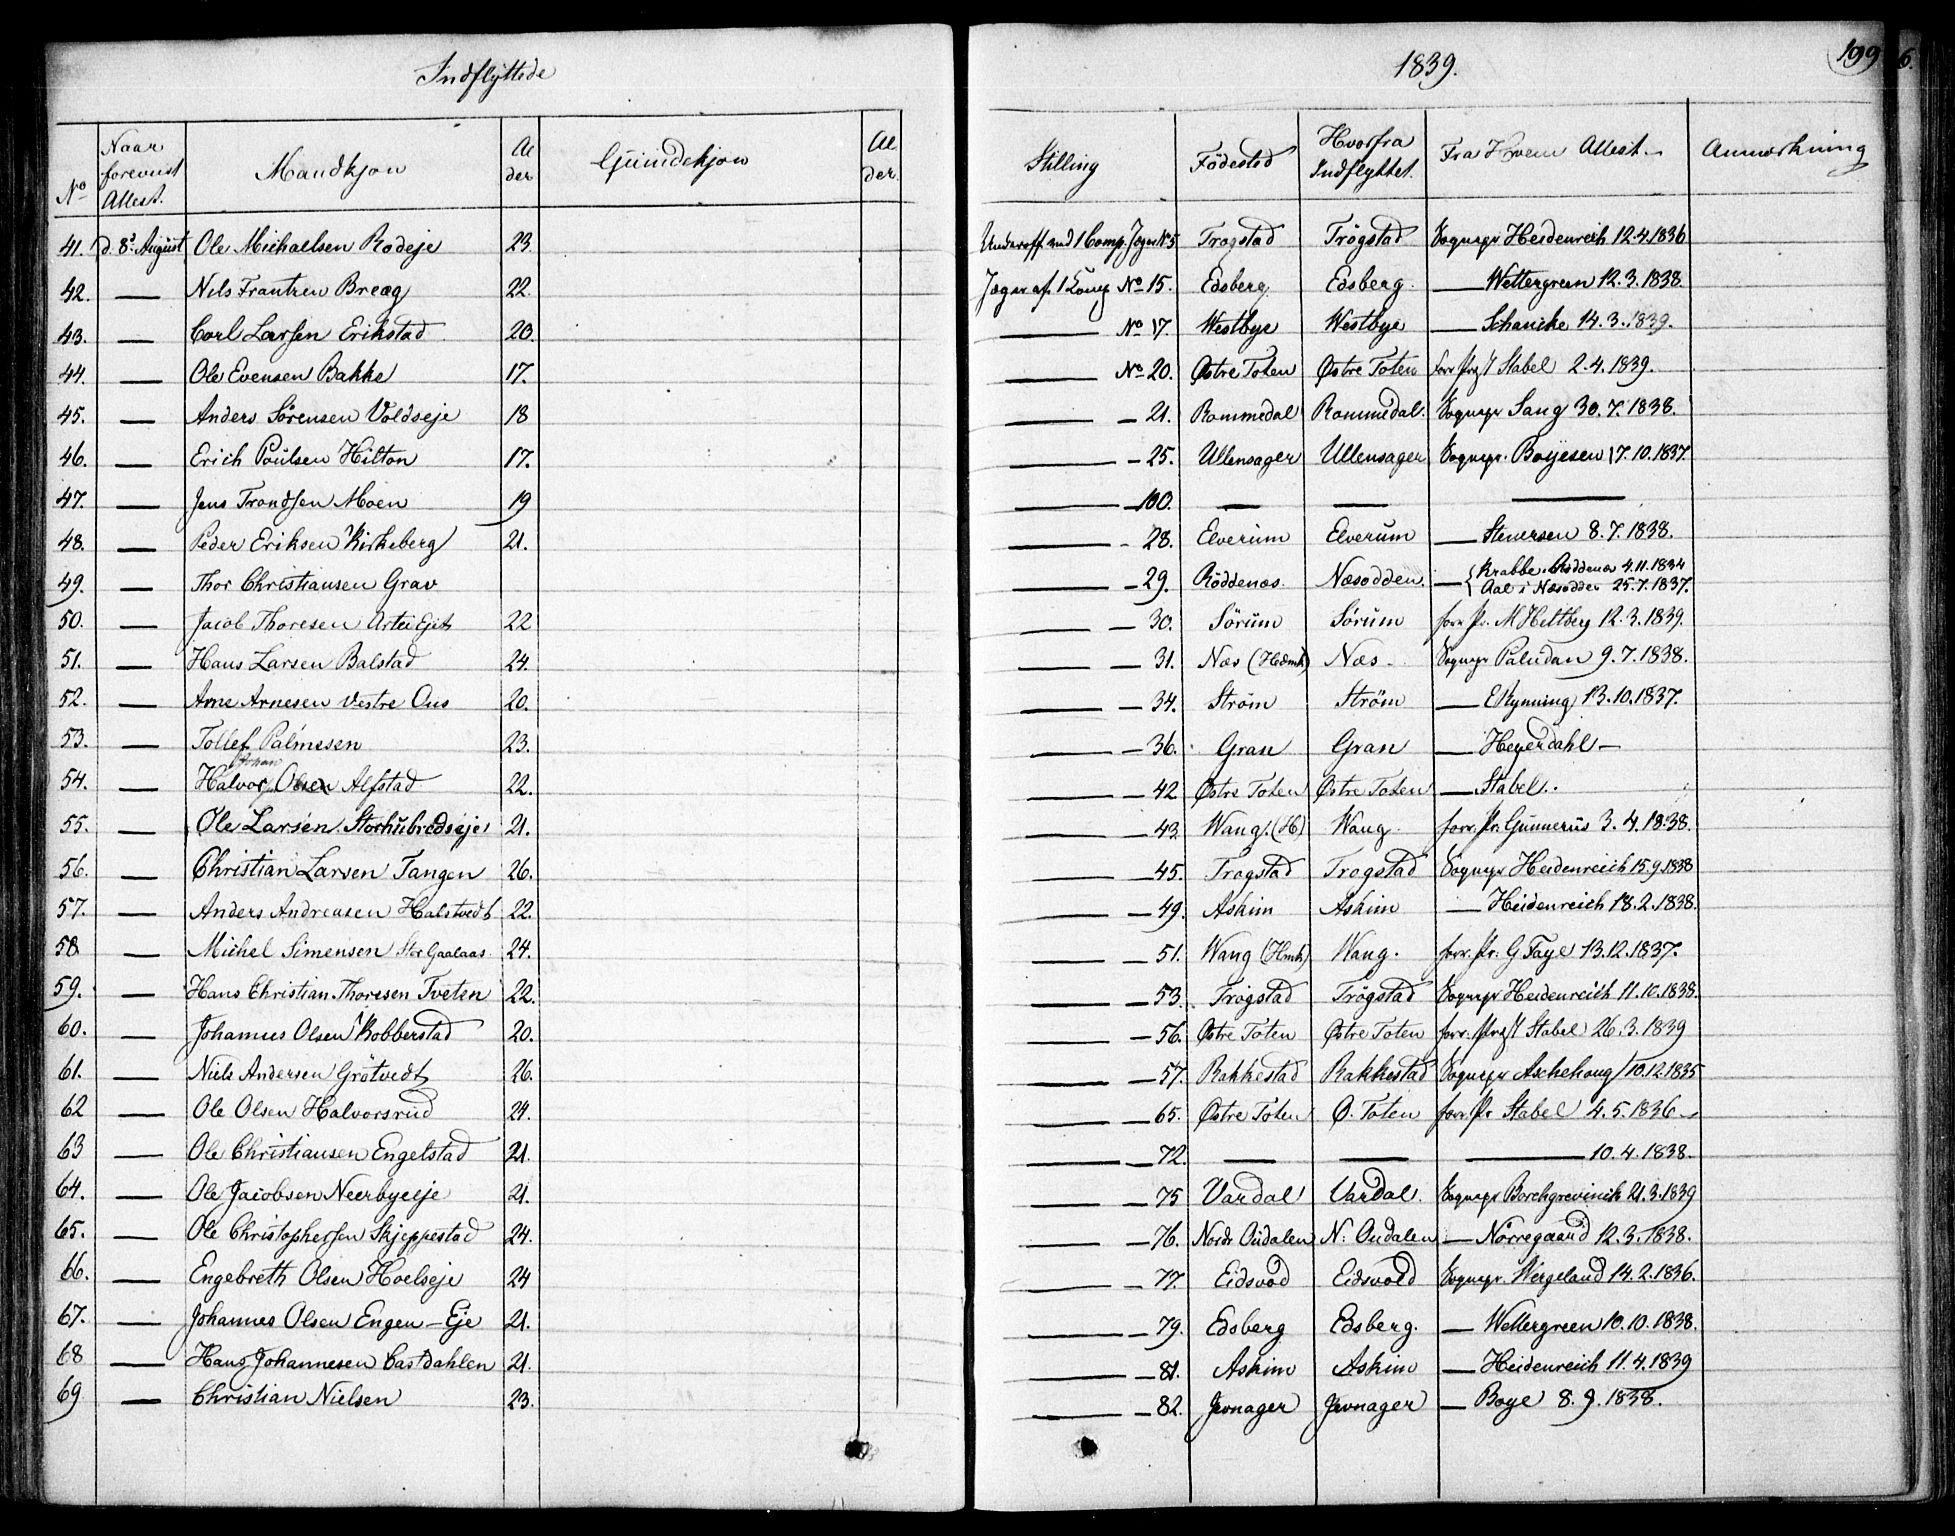 Indflyttede
1839.
199
6.
No Naar foreviist Attest. Mandkjøn Alder Quindekjøn Alder Stilling Fødested Hvorfra Indflyttet. Fra Hvem Attest. Anmærkning
41. d. 8. August Ole Michaelsen Rodeje 23. Underoff. ved 1 Comp. Jæger No 5 Trogstad Trögstad Sognepr Heidenreich 12.4.1836
42. — Nils Frantzen Breeg 22. Jæger af 1 Comp No 15. Edsberg Edsberg — Wettergreen 12.3.1838.
43. — Carl Larsen Erikstad 20. — No 17. Westbye Westbye — Schancke 14.3.1839.
44. — Ole Evensen Bakke 17. — No 20. Østre Toten Østre Toten forr Stabel 2.4.1839.
45. — Anders Sörensen Voldseje 18 — 21. Rommedal Rommedal. Sognepr Sang 30.7.1838.
46. — Erich Poulsen Hilton 17. — 25. Ullensager Ullensager Sognepr. Boyesen 17.10.1837.
47. — Jens Trondsen Moen 19 — 100. — — —
48. — Peder Eriksen Kirkeberg 21. — 28. Elverum Elverum — Stenersen 8.7.1838.
49. — Thor Christiansen Grav — 29. Röddenæs. Næsodden. — { Krabbe Röddenæs 4.11.1834
Aal i Næsodden 25.7.1837.
50. — Jacob Thoresen 22 — 30. Sörum Sörum forr. Pr. M Heltberg 12.3.1839.
51. — Hans Larsen Balstad 24. — 31. Næs (Hedmk) Næs — Sognepr Paludan 9.7.1838.
52. — Arne Arnesen Vestre Ous 20. — 34. Ström Ström — E Rynning 13.10.1837.
53. — Tollef Palmesen 23. — 36. Gran Gran — Heyerdahl —
Johan
54. — Halvor Olsen Alfstad 22. — 42 Østre Toten Østre Toten — Stabel.
55. — Ole Larsen Storhubredseje 21. — 43 Wang. (H) Wang. forr. Pr. Gunnerus 3.4.1838.
56. — Christian Larsen Tangen 26. — 45. Trogstad Trogstad Sognepr Heidenreich 15.9.1838
57. — Anders Andreasen Halstvedt 22. — 49. Askim Askim — Heidenreich 18.2.1838.
58 — Michel Simensen Stor Gaalaas 24. — 51. Wang (Hmk) Wang. forr. Pr. G Faye 13.12.1837.
59. — Hans Christian Thoresen Tveten 22. — 53. Trögstad Trögstad Sognepr Heidenreich 11.10.1838.
60. — Johannes Olsen Kobberstad 20. — 56. Østre Toten Østre Toten forr. Stabel 26.3.1839
61. — Niels Andersen Grötvedt 26. — 57. Rakkestad Rakkestad Sognepr Aschehoug 10.12.1835
62 — Ole Olsen Halvorsrud 24. — 65. Østre Toten Ø. Toten forr. Pr Stabel 4.5.1836 —
63 — Ole Christiansen Engelstad 21. — 72. — — — 10.4.1838.
64. — Ole Jacobsen Neerbyeeje 21. — 75 Vardal Vardal. Sognepr Borchgrevinck 21.3.1839
65. — Ole Christophersen Skjeppestad 24. — 76. Nordr Oudalen N: Oudalen — Nörregaard 12.3.1838.
66. — Engebreth Olsen Hoelseje 24 — 77. Eidsvod Eidsvold Sognepr. Wergeland 14.2.1836.
67. — Johannes Olsen Engen-Eje 21. — 79. Edsberg Edsberg. — Wettergreen 10.10.1838.
68 — Hans Johannesen Castdahlen 21. — 81. Askim Askim — Heidenreich 11.4.1839
69 — Christian Nielsen 23. — 82. Jevnager Jevnager — Boye 8.9.1838.